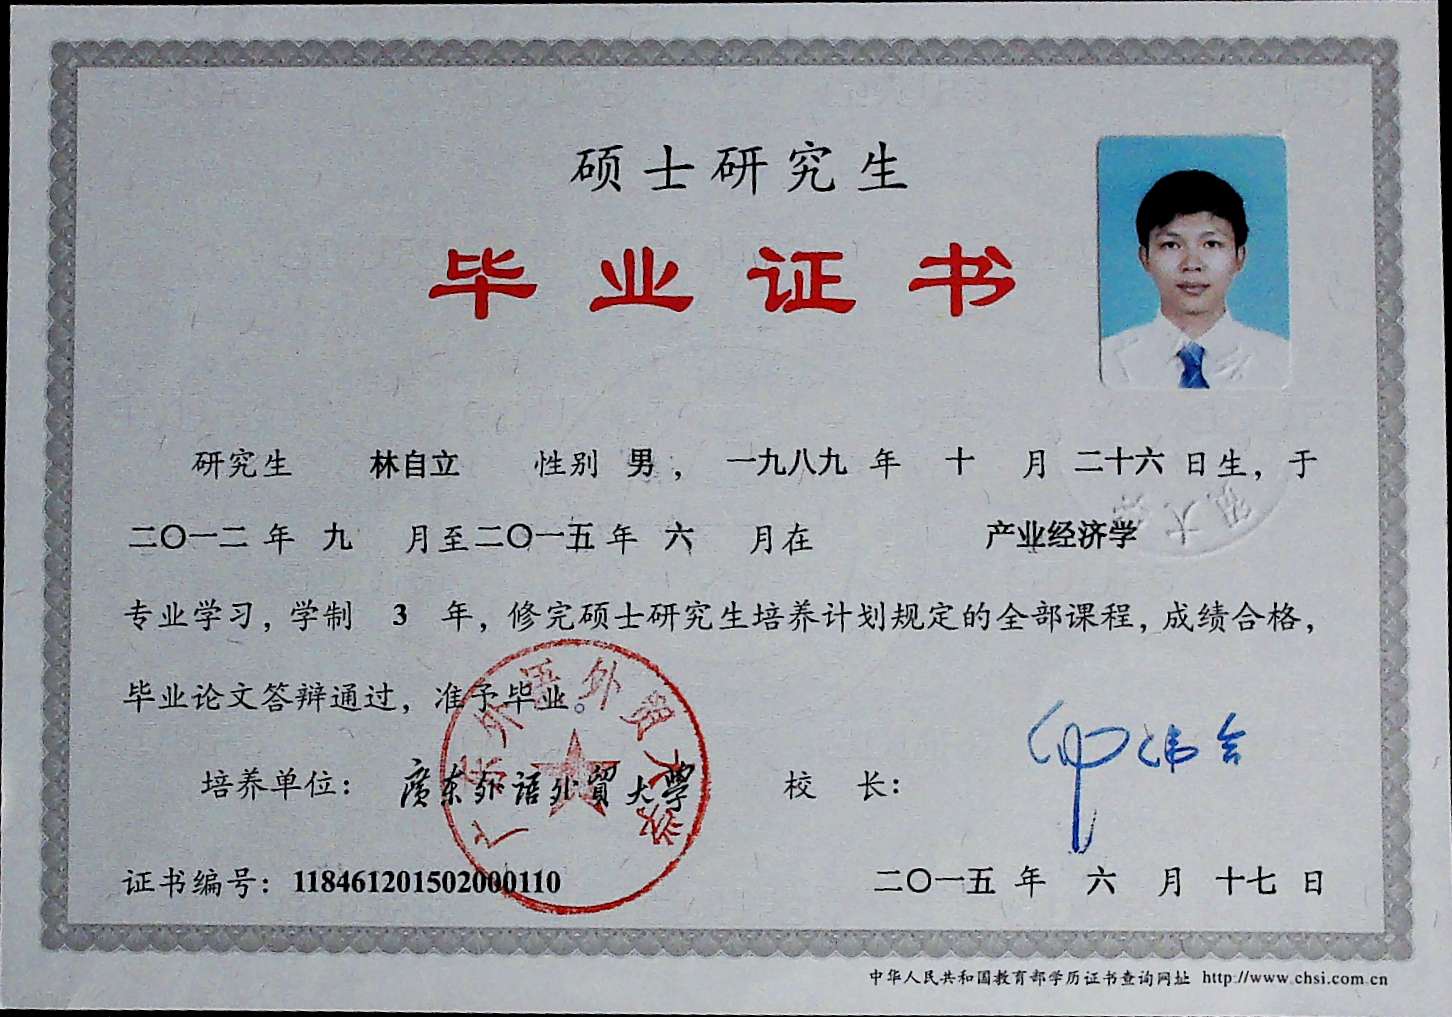 硕士研究生
毕业证书
研究生 林自立 性别 男，一九八九 年 十 月 二十六 日生，于
二〇一二 年 九 月至二〇一五年 六 月在 产业经济学
专业学习，学制 3 年，修完硕士研究生培养计划规定的全部课程，成绩合格，
毕业论文答辩通过，准予毕业。
培养单位：廣东外语外貿大學 校 长：
广东外语外贸大学
证书编号：118461201502000110 二〇一五 年 六 月 十七 日
中华人民共和国教育部学历证书查询网址 http://www.chsi.com.cn